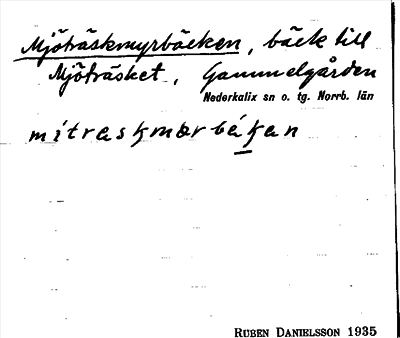 Mjöträskmyrbäcken, bäck till
Mjöträsket, Gammelgården
Nederkalix sn o. tg. Norrb. län
mitraskmørbékan
RUBEN DANIELSSON 1935